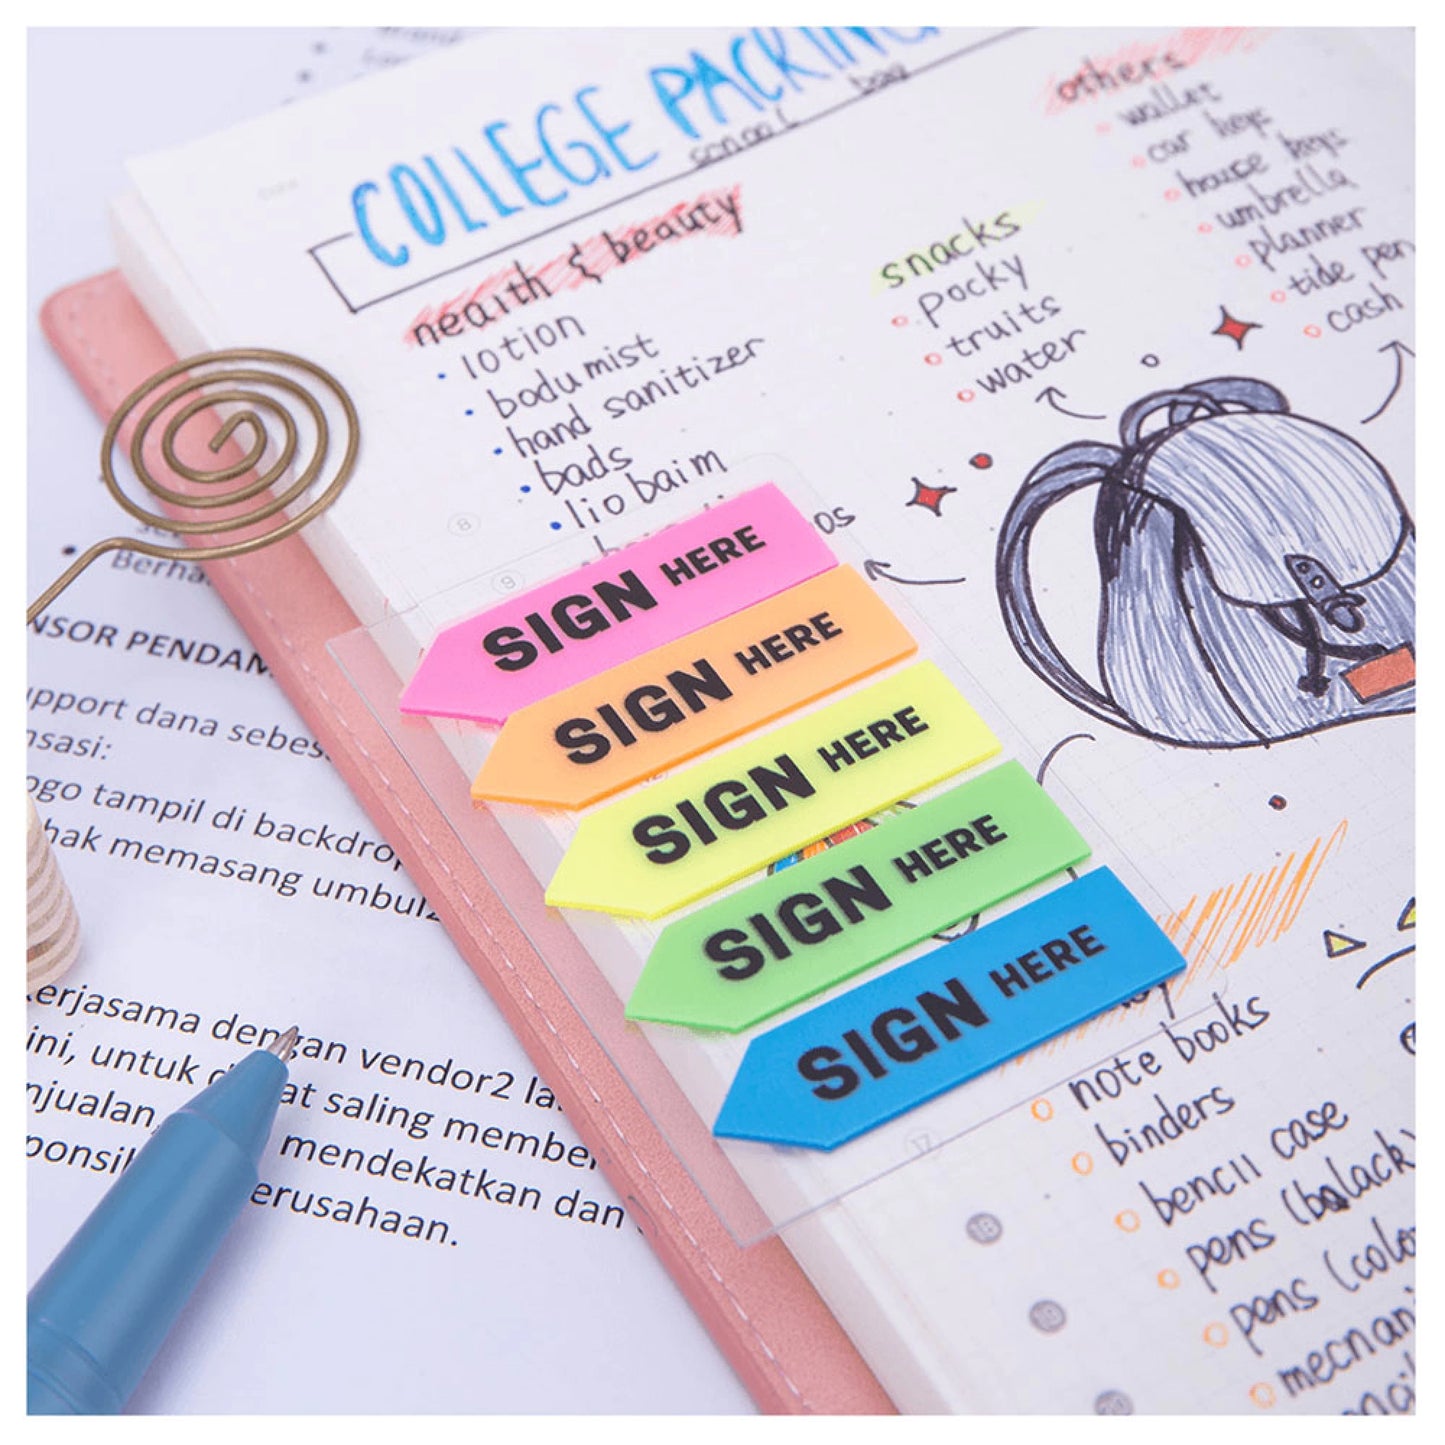 COLLEGE PACKING
school bag
health & beauty
lotion
bodumist
hand sanitizer
bads
lio baim
snacks
pocky
truits
water
others
wallet
car keys
house keys
umbrella
planner
tide pen
cash
8
9
SIGN HERE
SIGN HERE
SIGN HERE
SIGN HERE
SIGN HERE
17
18
19
20
note books
binders
bencil case
pens (balack)
pens (colo
mecnani
Berha
NSOR PENDAM
upport dana sebes
nsasi:
ogo tampil di backdro
hak memasang umbul
erjasama dengan vendor2 la
ini, untuk dapat saling membe
njualan,
ponsi mendekatkan dan
erusahaan.